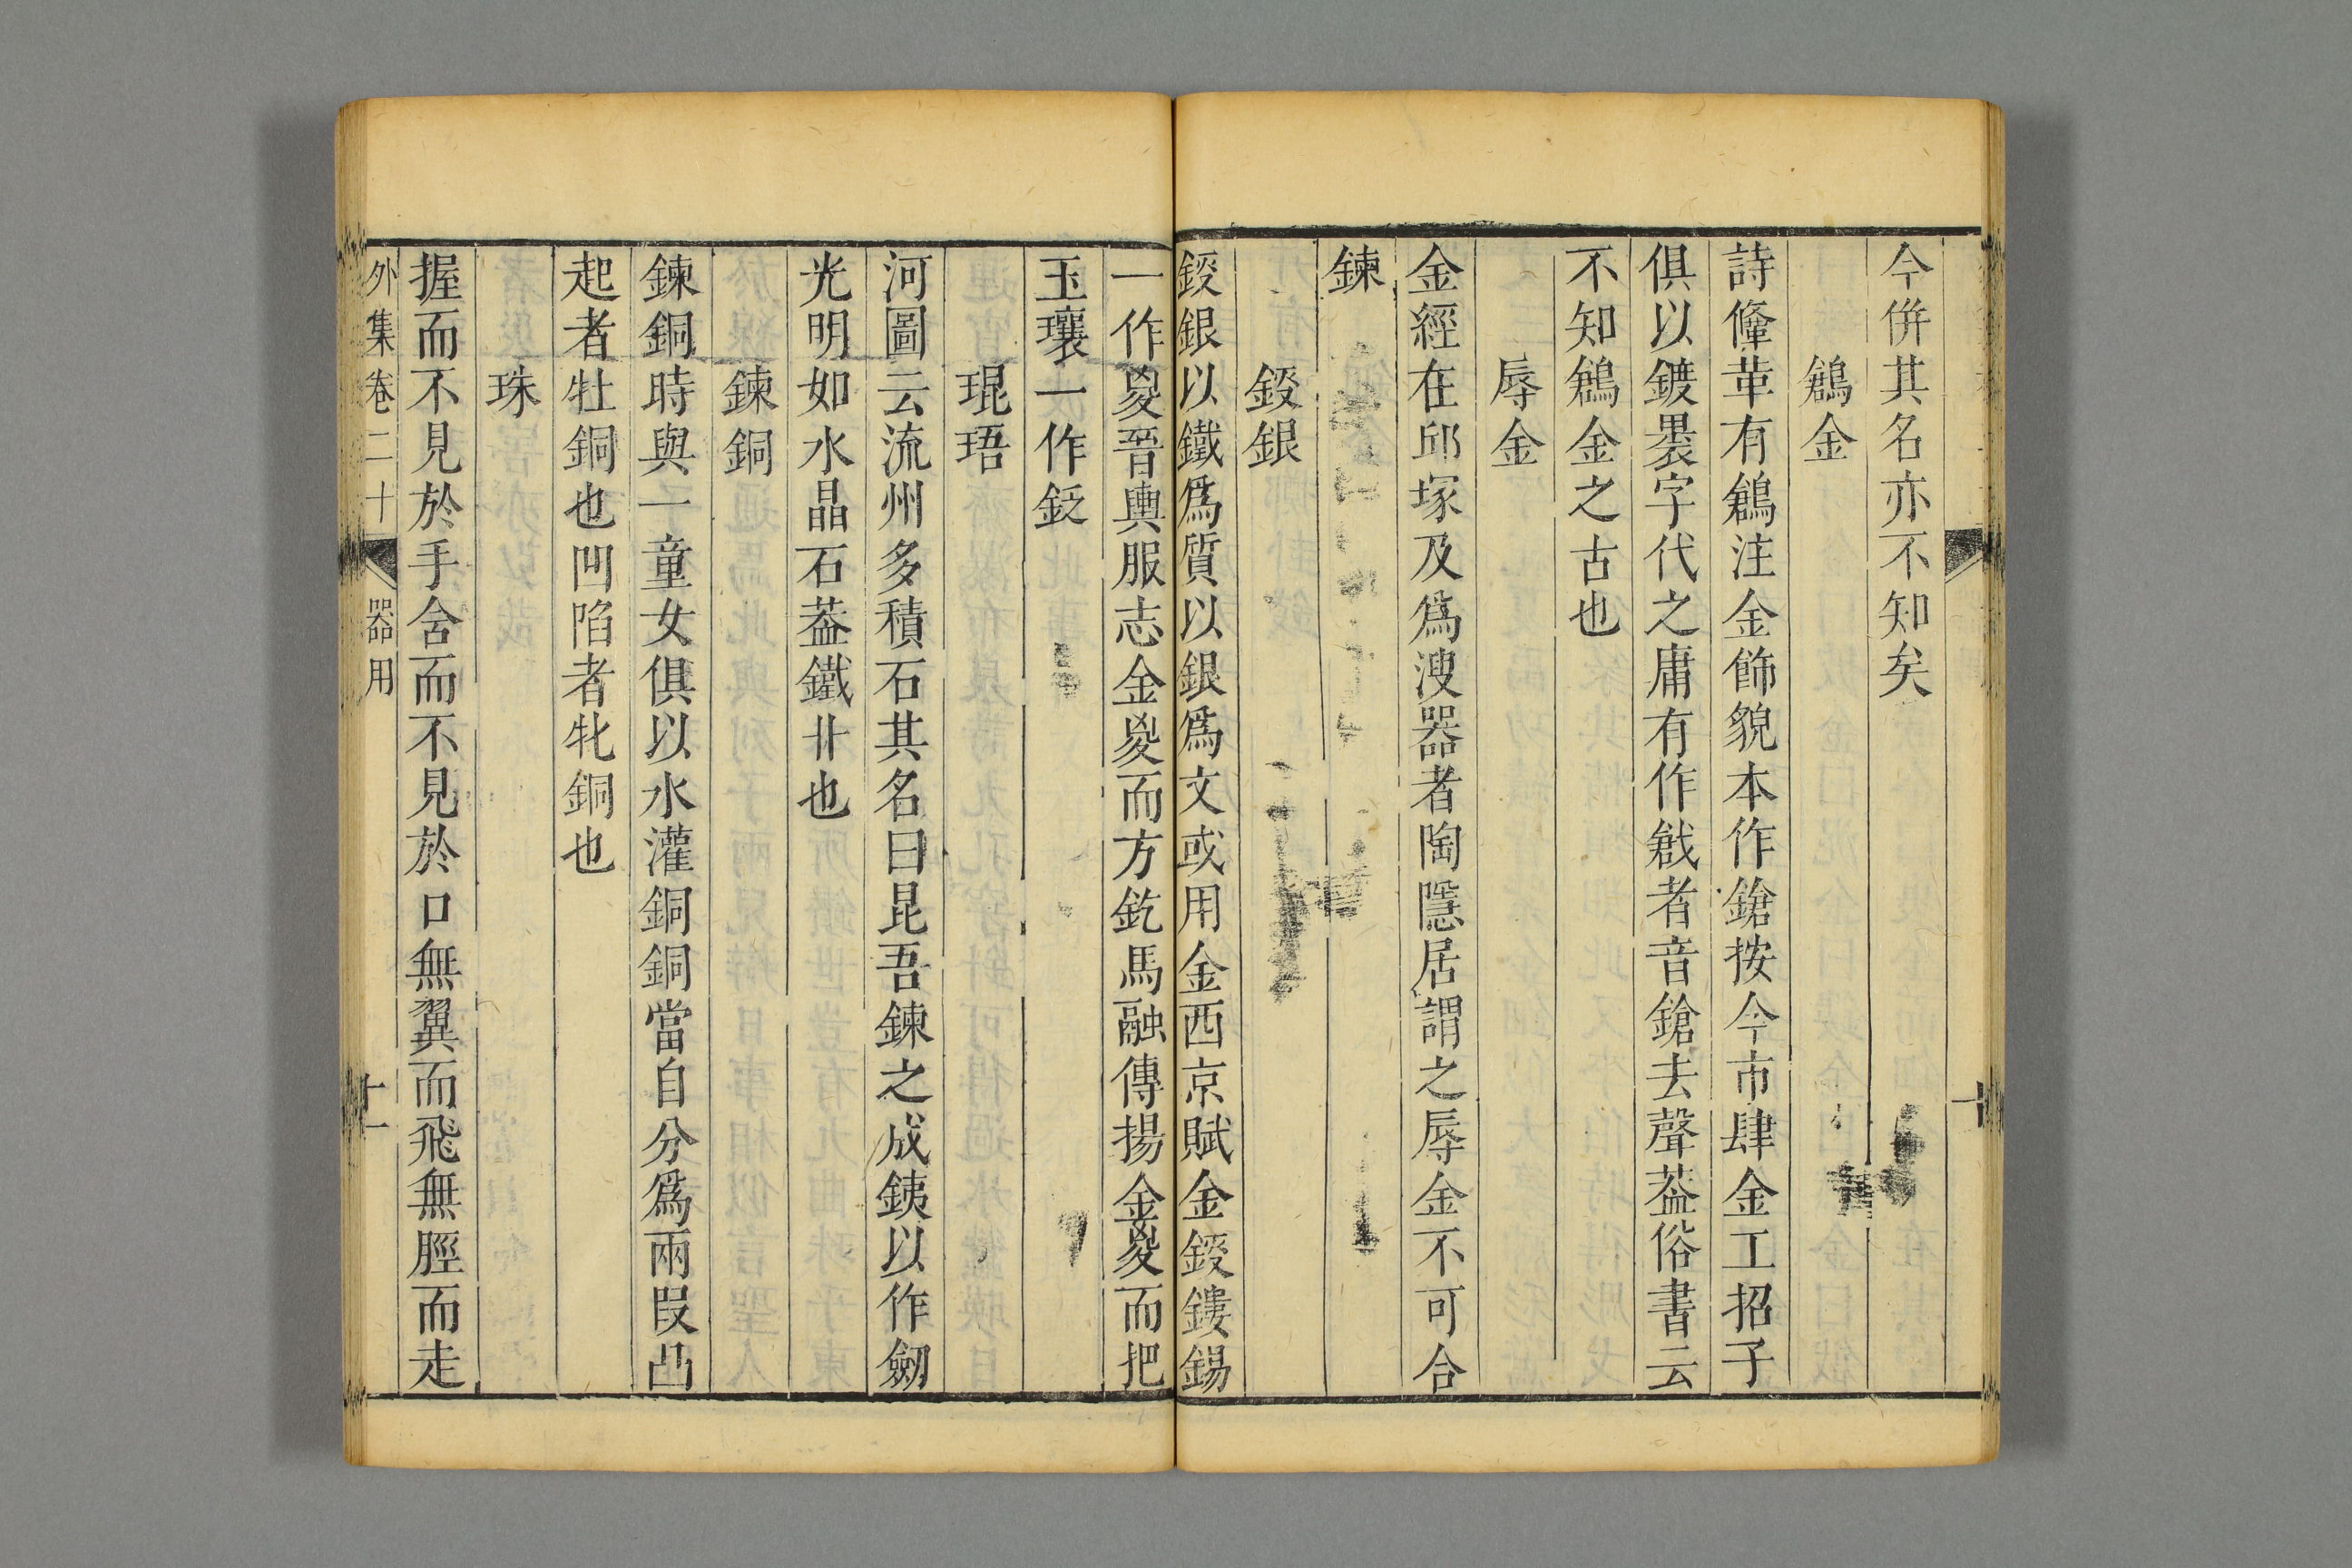 今併其名亦不知矣
鶬金
詩鞗革有鶬注金飾貌本作鎗按今市肆金工招子
俱以鍍褁字代之庸有作戧者音鎗去聲葢俗書云
不知鶬金之古也
辱金
金經在邱塚及爲溲器者陶隱居謂之辱金不可合
鍊
鋄銀
鋄銀以鐵爲質以銀爲文或用金西京賦金鋄鏤錫
一作㚇晉輿服志金㚇而方釳馬融傳揚金㚇而把
玉瓖一作鈘
琨珸
河圖云流州多積石其名曰昆吾鍊之成鐵以作劒
光明如水晶石葢鐵丱也
鍊銅
鍊銅時與一童女俱以水灌銅銅當自分爲兩段凸
起者牡銅也凹陷者牝銅也
珠
握而不見於手舍而不見於口無翼而飛無脛而走
外集卷二十 器用 十一